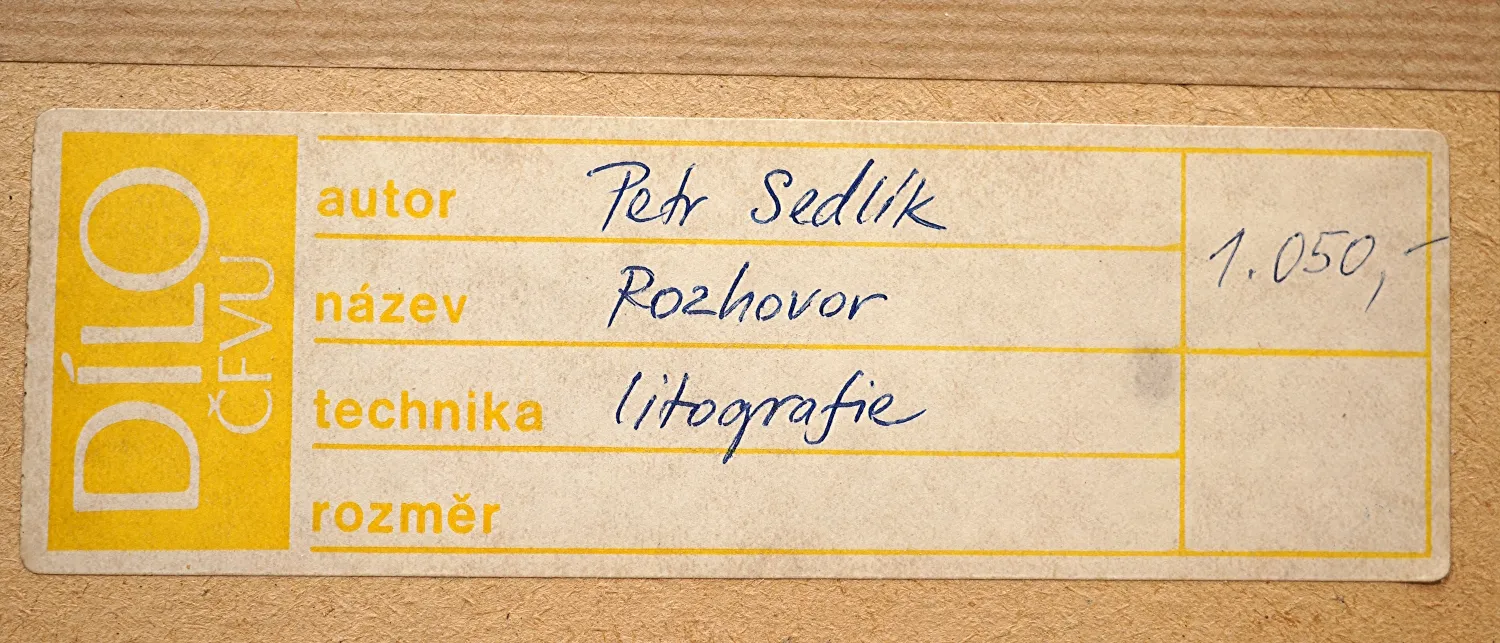 DÍLO
ČFVU
autor Petr Sedlík
1.050,-
název Rozhovor
technika litografie
rozměr